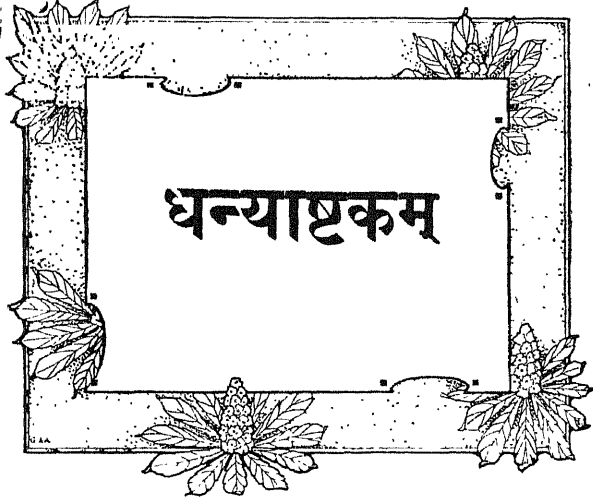 धन्याष्टकम्